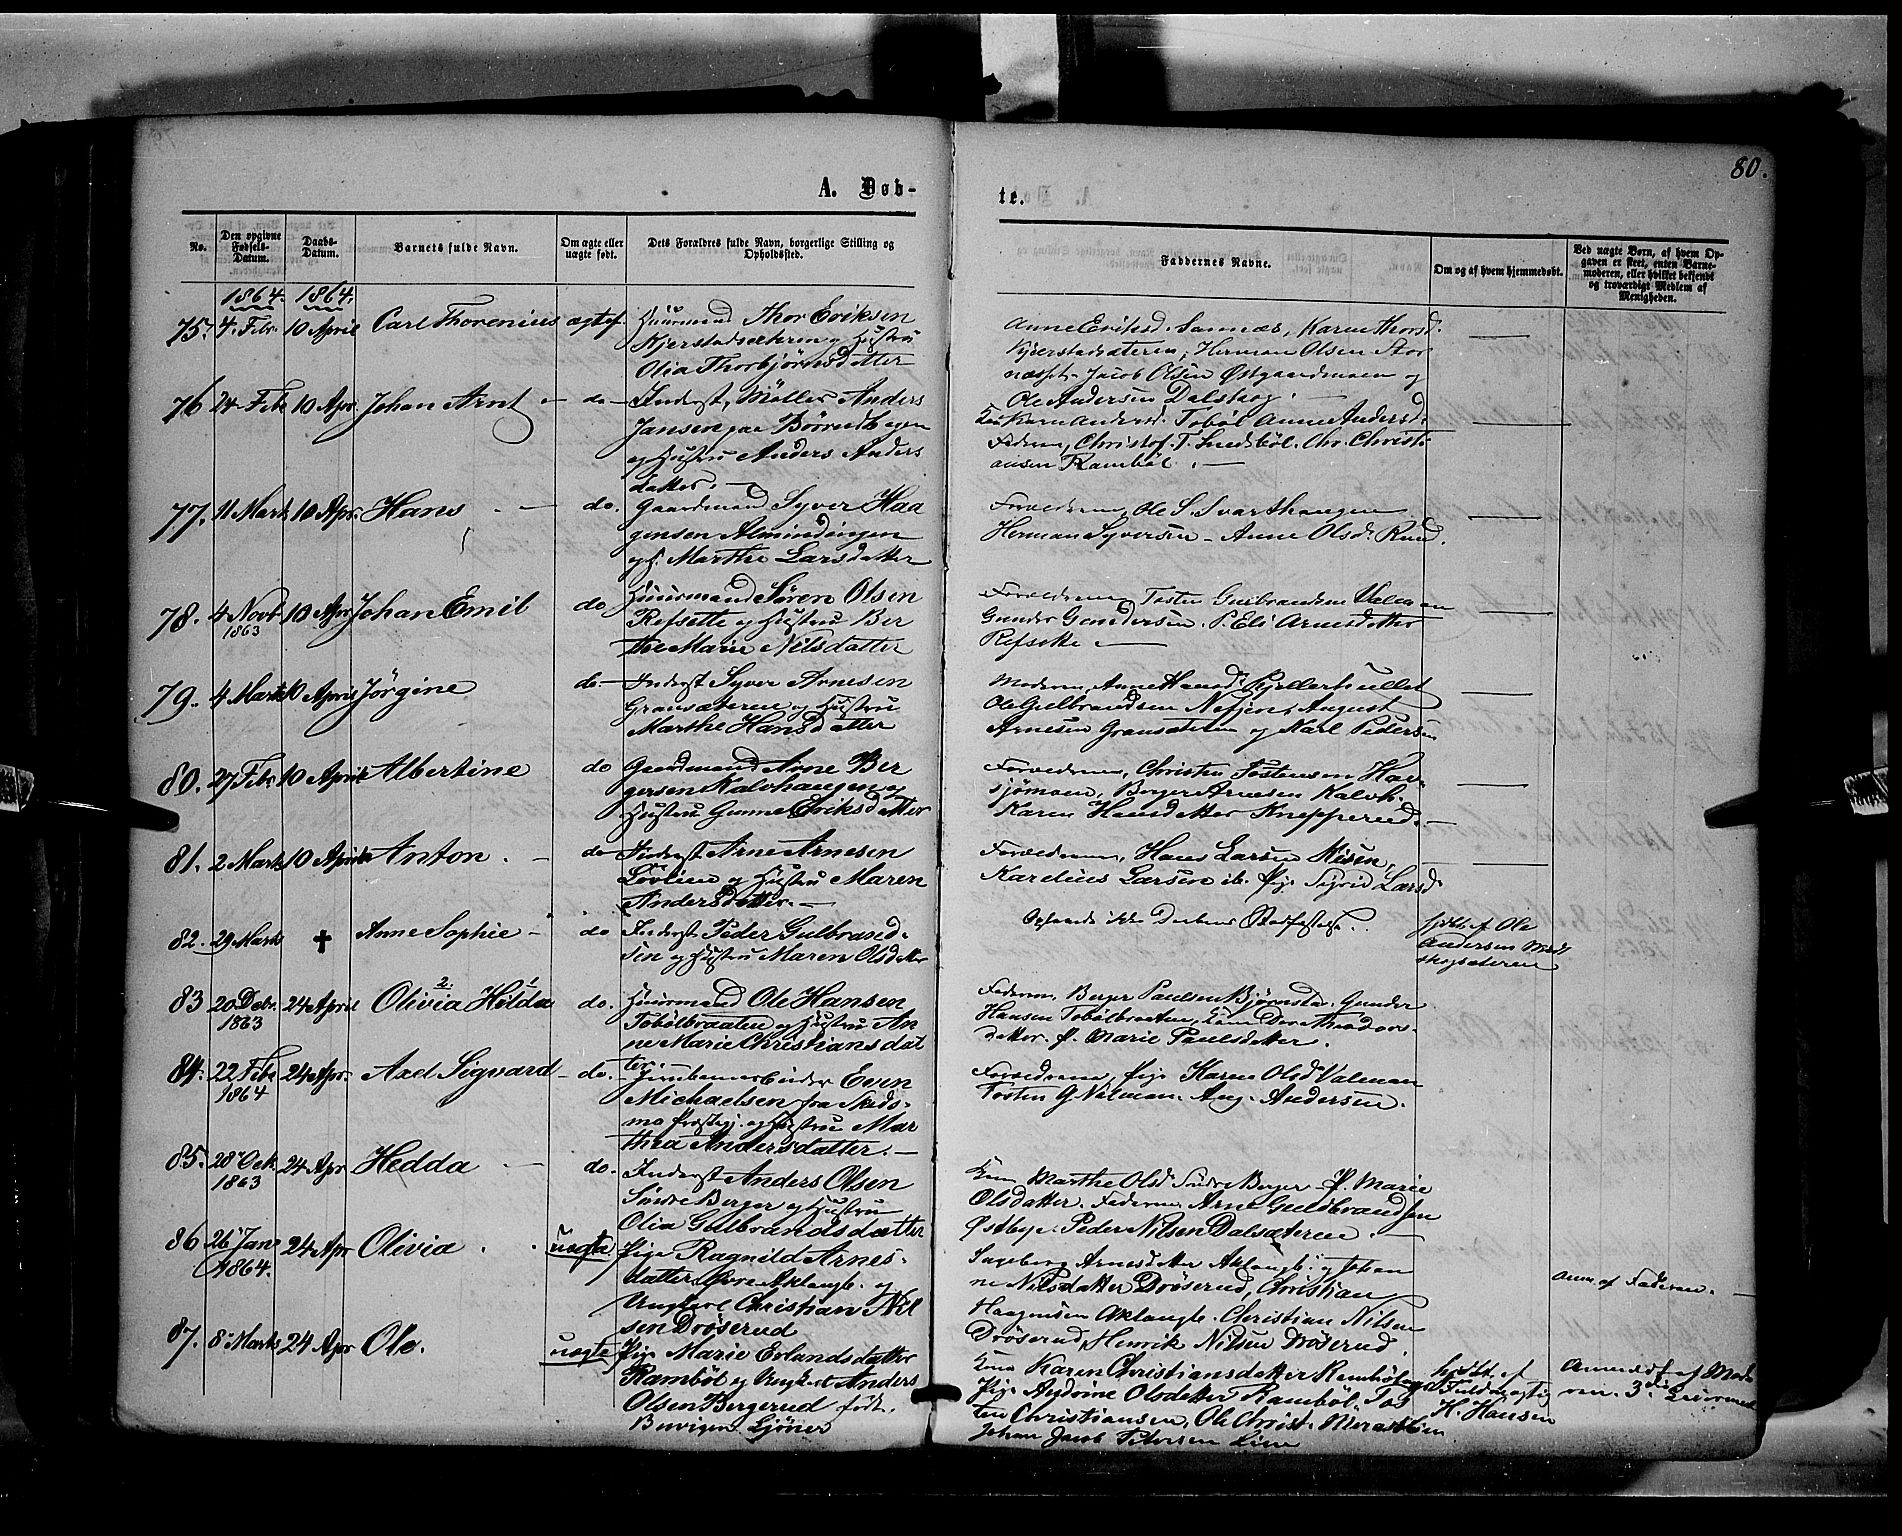 80.
A. Døb-
te.
No.
Den opgivne Fødsels-Datum.
Daabs-Datum.
Barnets fulde Navn.
Om ægte eller uægte født.
Dets Forældres fulde Navn, borgerlige Stilling og Opholdssted.
Faddernes Navne.
Om og af hvem hjemmedøbt.
Ved uægte Børn, af hvem Opgaven er skeet, enten Barnemoderen, eller hvilket bekjendt og troværdigt Medlem af Menigheden.
1864. 1864.
75. 4. Febr. 10 April Carl Thorenius ægtef.
Huurmand Thor Eriksen
Kjerstadsæteren og Hustru
Olia Thorbjørnsdatter
Anne Eriksd. Sannæs, Karen Thorsd.
Kjerstadsæteren, Herman Olsen Stor
næsset, Jacob Olsen Østgaardmoen og
Ole Andersen Dalskog.
76 24 Febr 10 Apr Johan Arnt do
Inderst, Møller Anders
Jansen paa Børrud egen
og Hustru Anders Anders
datter.
Karen Andersd. Tobøl Anne Andersd.
Faderen, Christof. T. Smedsbøl. Chr. Christi
ansen Rambøl.
77. 11 Marts 10 Apr. Hans do.
Gaardmand Syver Haa
gensen Almindingen
og H. Marthe Larsdatter
Forældrene, Ole S. Svarthaugen
Herman Syversen - Anne Olsd. Rud.
78. 4 Novb 1863 10 Apr Johan Emil do
Huurmand Søren Olsen
Refsette og Hustru Ber
the Marie Nilsdatter
Forældrene Tosten Gulbrandsen Valman
Gunder Gundersen. P. Eli Arnesdatter
Refsette
79. 4 Marts 10 April Jørgine do.
Inderst Syver Arnesen
Gransæteren og Hustru
Marthe Hansdatter
Moderen, Anne Hansd. Kjellerhullet
Ole Gulbrandsen August
Arnesen Gransæteren og Karl Pedersen
80. 27 Febr 10 April Albertine do
Gaardmand Arne Ber
gersen Kalvhaugen og
Hustru Gunne Eriksdatter
Forældrene, Christen Tostensen Hav
sjømoen, Berger Arnesen Kalvh.
Karen Hansdatter Knapperud.
81. 2 Marts 10 April Anton. do
Inderst Arne Arnesen
Løvlien og Hustru Maren
Andersdatter.
Forældrene, Hans Larsen Risen,
Karelius Larsen ib. Pige Sigrid Larsd
82. 29 Marts † Anne Sophie do
Inderst Peder Gulbrand-
sen og Hustru Maren Olsdatter
Opnaaede ikke Daabens Stadfæstelse.
hjdbt. af Ole
Andersen Midt
skogsæteren
83 20 Debr. 1863 24 April Olivia Hilda do.
2. 1
Huurmand Ole Hansen
Tobølbraaten og Hustru An
ne Marie Christiansdat
ter.
Faderen, Berger Paulsen Bjørnstad, Gunder
Hansen Tobølbraaten, Kone Dorthe Theodors-
datter. P. Marie Paulsdatter.
84. 22 Febr 1864 24 Apr. Axel Sigvard do.
Even
Michaelsen fra Skeds-
mo Præstegj. og Hustru Mar
thea Andersdatter.
Forældrene, Pige Karen Olsd. Valman
Tosten G. Valman. Aug. Andersen.
85. 28 Oct. 1863 24 Apr Hedda do.
Inderst Anders Olsen
Søndre Berger og Hustru
Olia Gulbrandsdatter
Kone Marthe Olsd. Søndre Berger P. Marie
Olsdatter. Faderen Arne Guldbrandsen
Østbye. Peder Nilsen Dalsæteren.
86 26 Janr 1864. 24 Apr Olivia uægte
Pige Ragnild Arnes-
datter Øvre Aklangb. og
Ungkarl Christian Nil
sen Drøserud
Ingeborg Arnesdatter Aklangb. og Johan
ne Nilsdatter Drøserud, Christian
Haagensen Aklangb. Christian Nilsen
Drøserud, Henrik Nilsen Drøserud.
Anm. af Faderen.
87. 8 Marts 24 Apr Ole. uægte
Pige Marie Erlandsdatter
Rambøl og Ungkarl Anders
Olsen Bergerud født.
Kone Karen Christiansdatter Rambøl
Pige Andrine Olsdatter Rambøl. Tos
ten Christiansen, Ole Christ.
Johan Jacob Petersen Lier
hjdbt. af
Fuldmægtig
H. Hansen
Anmeldt af Mode
ren. 3die Leiermaal